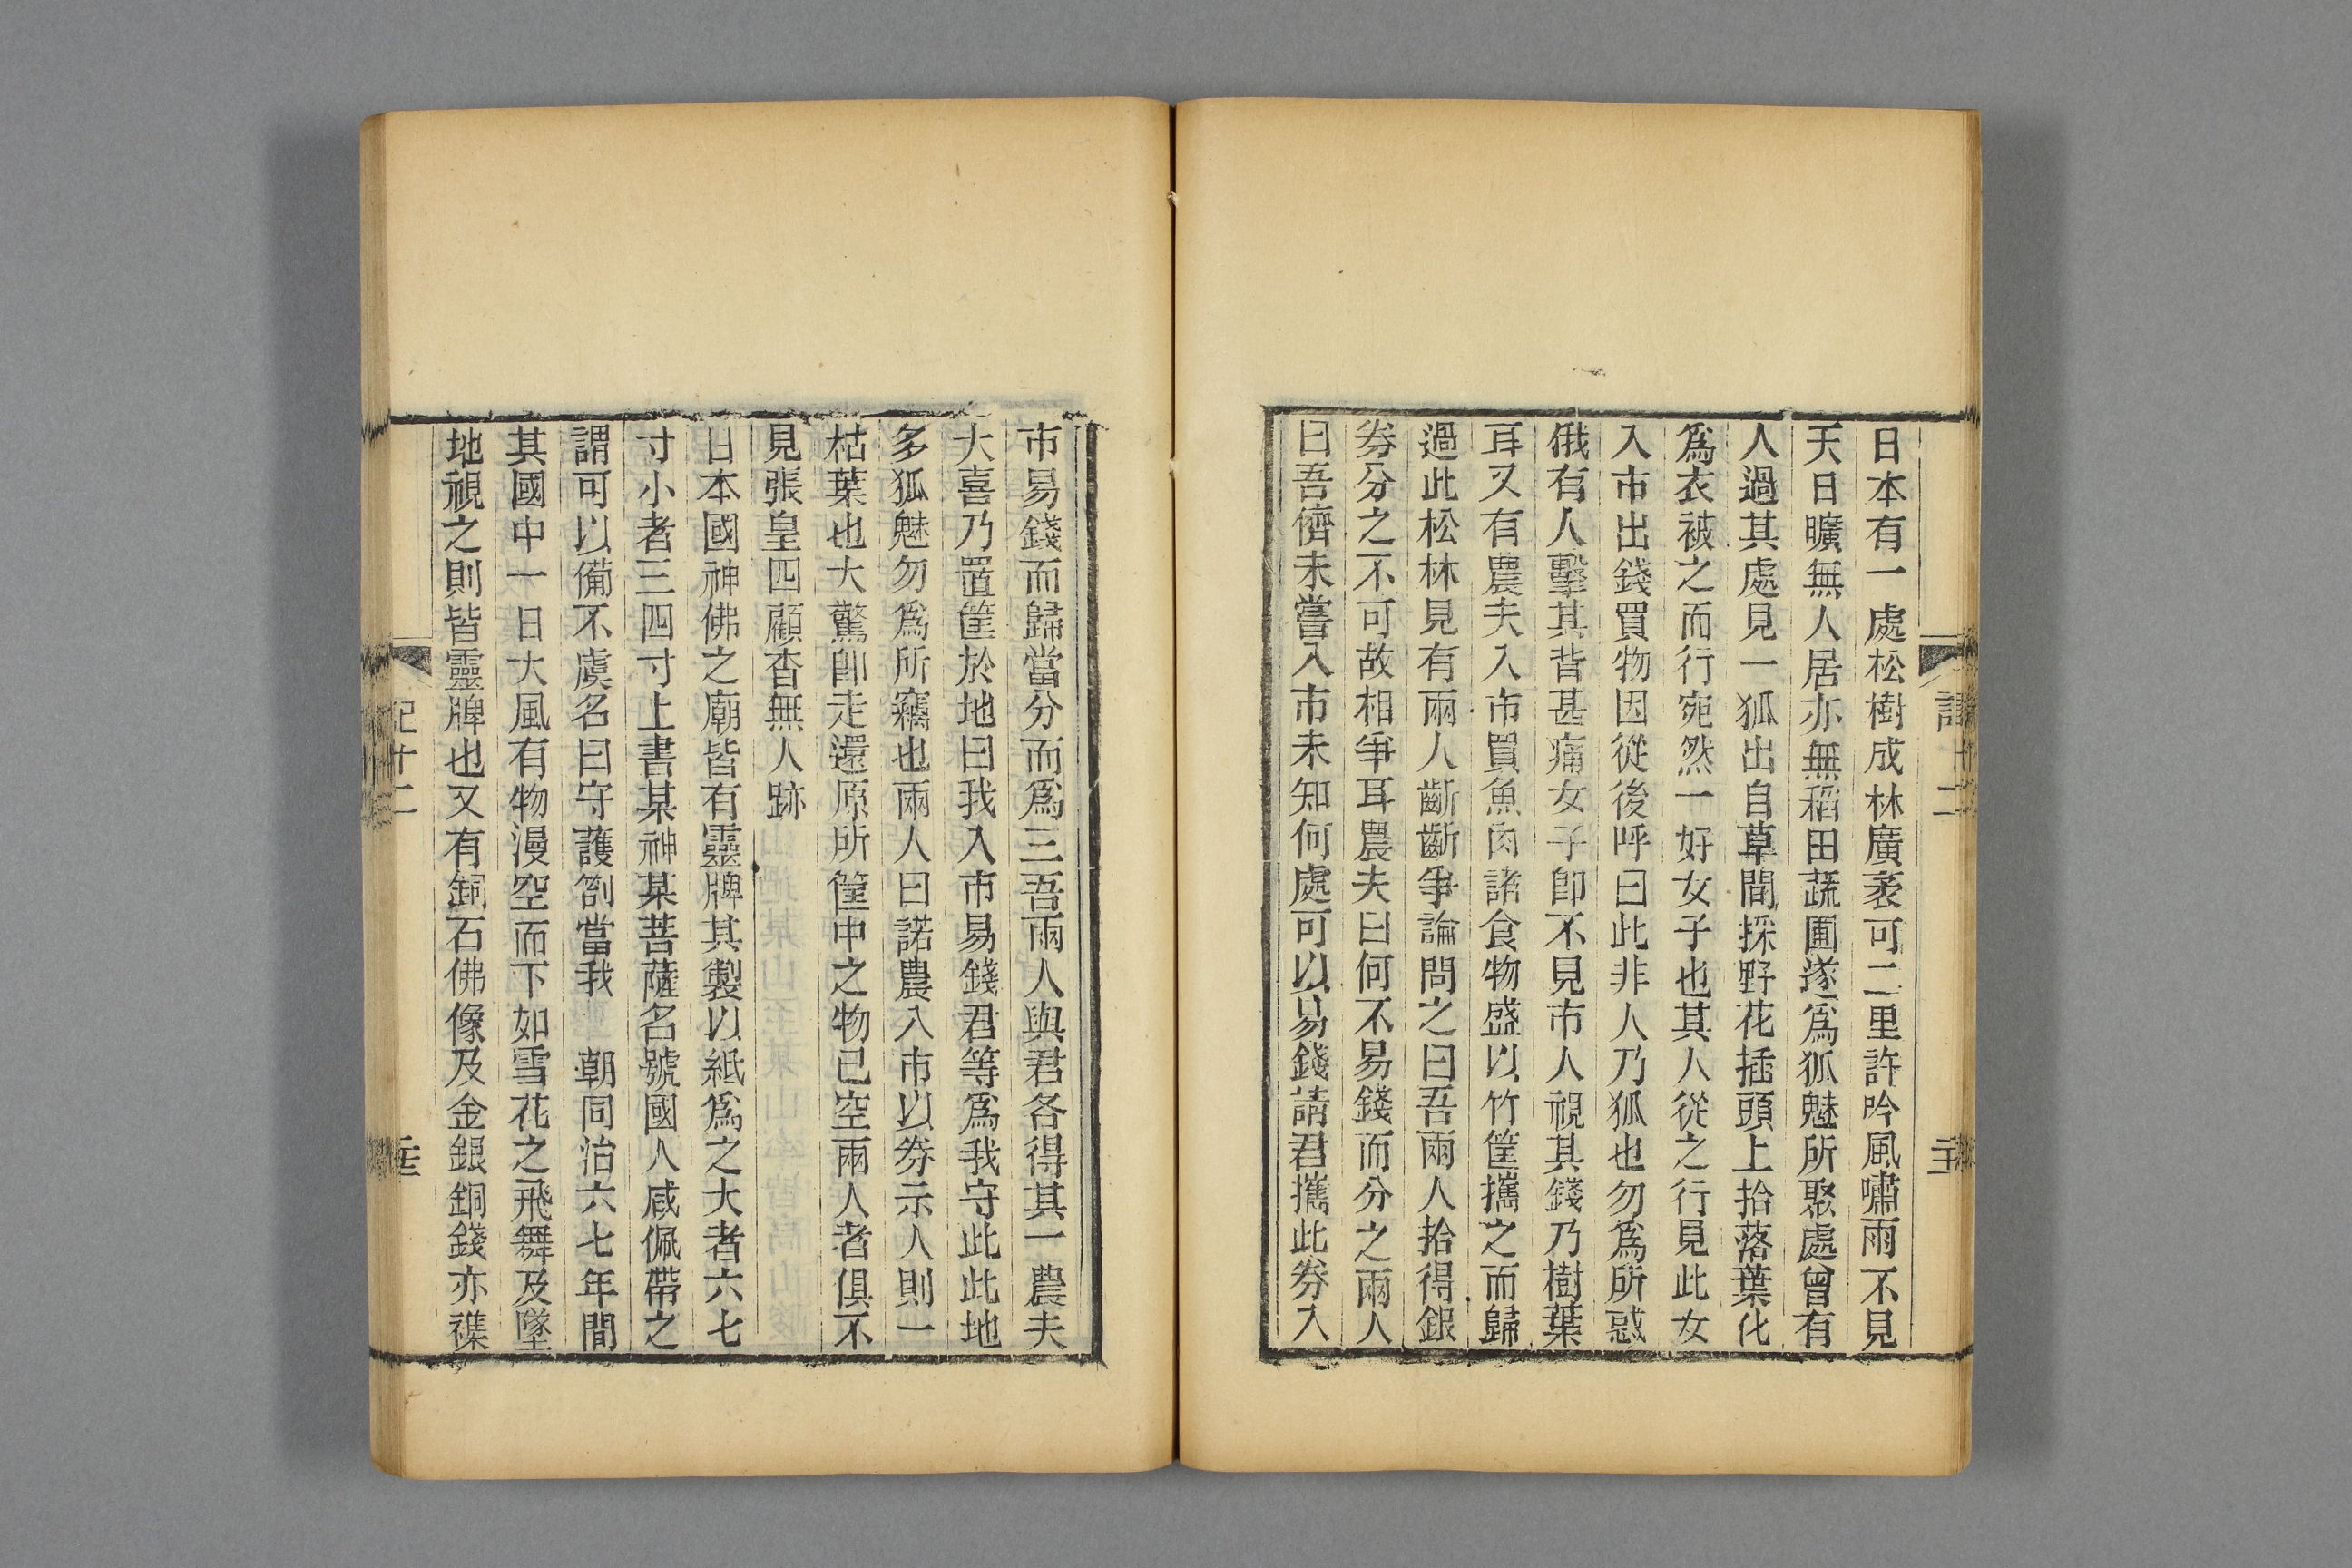 日本有一處松樹成林廣袤可二里許吟風嘯雨不見
天日曠無人居亦無稻田蔬圃遂爲狐魅所聚處曾有
人過其處見一狐出自草間採野花插頭上拾落葉化
爲衣被之而行宛然一好女子也其人從之行見此女
入市出錢買物因從後呼曰此非人乃狐也勿爲所惑
俄有人擊其背甚痛女子卽不見市人視其錢乃樹葉
耳又有農夫入市買魚肉諸食物盛以竹筐攜之而歸
過此松林見有兩人齗齗爭論問之曰吾兩人拾得銀
劵分之不可故相爭耳農夫曰何不易錢而分之兩人
曰吾儕未嘗入市未知何處可以易錢請君攜此劵入
市易錢而歸當分而爲三吾兩人與君各得其一農夫
大喜乃置筐於地曰我入市易錢君等爲我守此此地
多狐魅勿爲所竊也兩人曰諾農入市以劵示人則一
枯葉也大驚卽走還原所筐中之物已空兩人者俱不
見張皇四顧杳無人跡
日本國神佛之廟皆有靈牌其製以紙爲之大者六七
寸小者三四寸上書某神某菩薩名號國人咸佩帶之
謂可以備不虞名曰守護劄當我　朝同治六七年間
其國中一日大風有物漫空而下如雪花之飛舞及墜
地視之則皆靈牌也又有銅石佛像及金銀銅錢亦襍
記十二